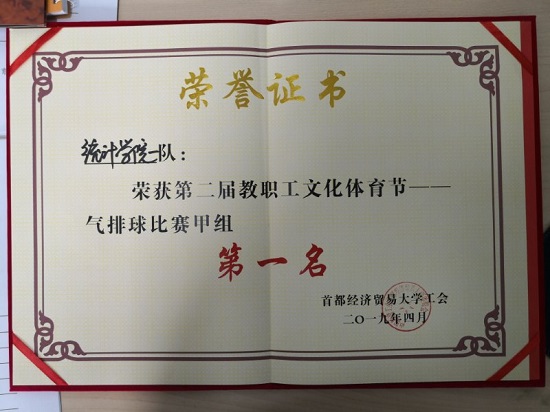 荣誉证书
统计学院一队：
荣获第二届教职工文化体育节——
气排球比赛甲组
第一名
首都经济贸易大学工会
二〇一九年四月